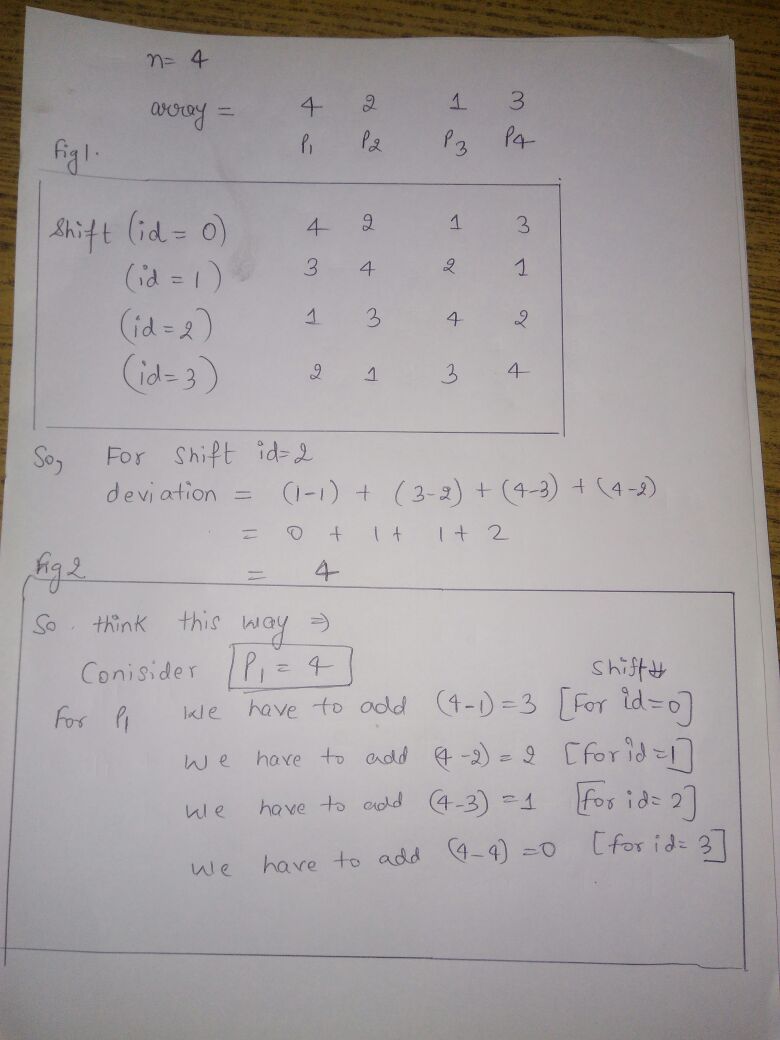 n= 4
array = 4 2 1 3
P1 P2 P3 P4
Fig 1.
Shift (id = 0) 4 2 1 3
(id = 1) 3 4 2 1
(id = 2) 1 3 4 2
(id = 3) 2 1 3 4
So, For Shift id=2
deviation = (1-1) + (3-2) + (4-3) + (4-2)
= 0 + 1 + 1 + 2
= 4
Fig 2
So think this way ⇒
Conisider P1 = 4 Shift
For P1 We have to add (4-1) = 3 [For id=0]
We have to add (4-2) = 2 [for id=1]
We have to add (4-3) = 1 [for id= 2]
We have to add (4-4) = 0 [for id= 3]